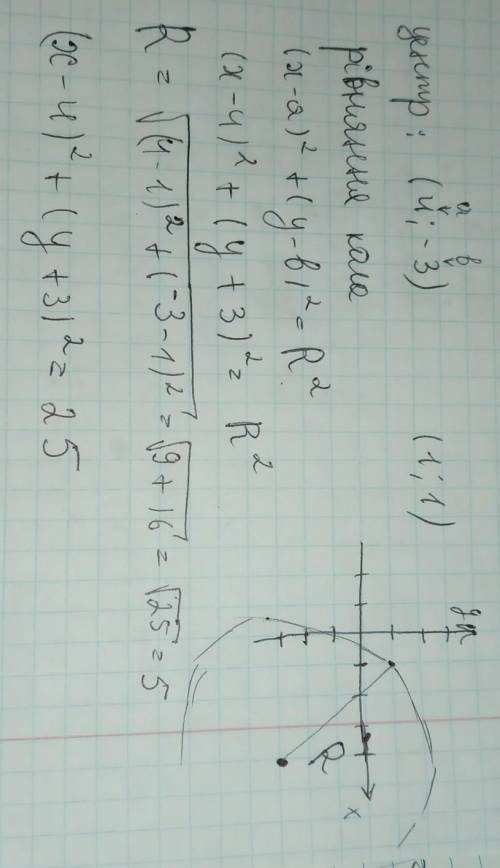 центр: (4; -3) (1; 1)
а в
рівняння кола
(x-a)² + (y-в)² = R²
(x-4)² + (y+3)² = R²
R = √((4-1)² + (-3-1)²) = √(9+16) = √25 = 5
(x-4)² + (y+3)² = 25
y
R
x